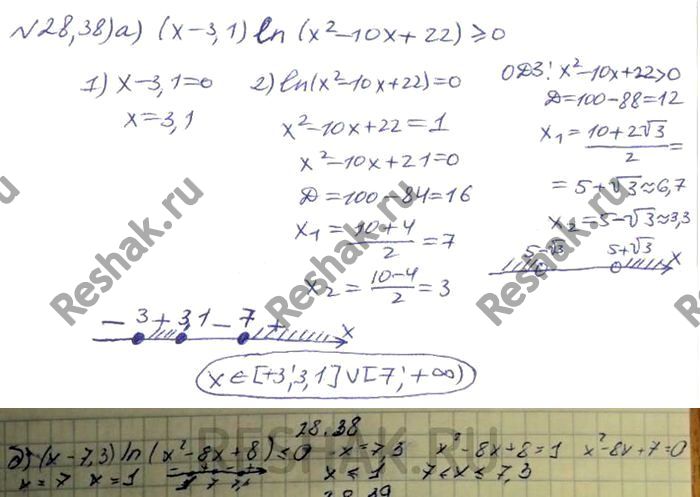 №28,38)а) (x-3,1) ln (x²-10x+22) ≥0
1) x-3,1=0
x=3,1
2) ln(x²-10x+22)=0
x²-10x+22=1
x²-10x+21=0
Д=100-84=16
x₁=(10+4)/2=7
x₂=(10-4)/2=3
ОДЗ: x²-10x+22>0
Д=100-88=12
x₁=(10+2√3)/2=
=5+√3≈6,7
x₂=5-√3≈3,3
5-√3 5+√3 x
- 3 + 3,1 - 7 + x
x∈[+3;3,1]∪[7;+∞)
Reshak.ru
Reshak.ru
Reshak.ru
Reshak.ru
RESHAK.RU
28.38
б) (x-7,3) ln (x²-8x+8) ≤0 x=7,3 x²-8x+8=1 x²-8x+7=0
x=7 x=1 x≤1 7≤x≤7,3
28.39